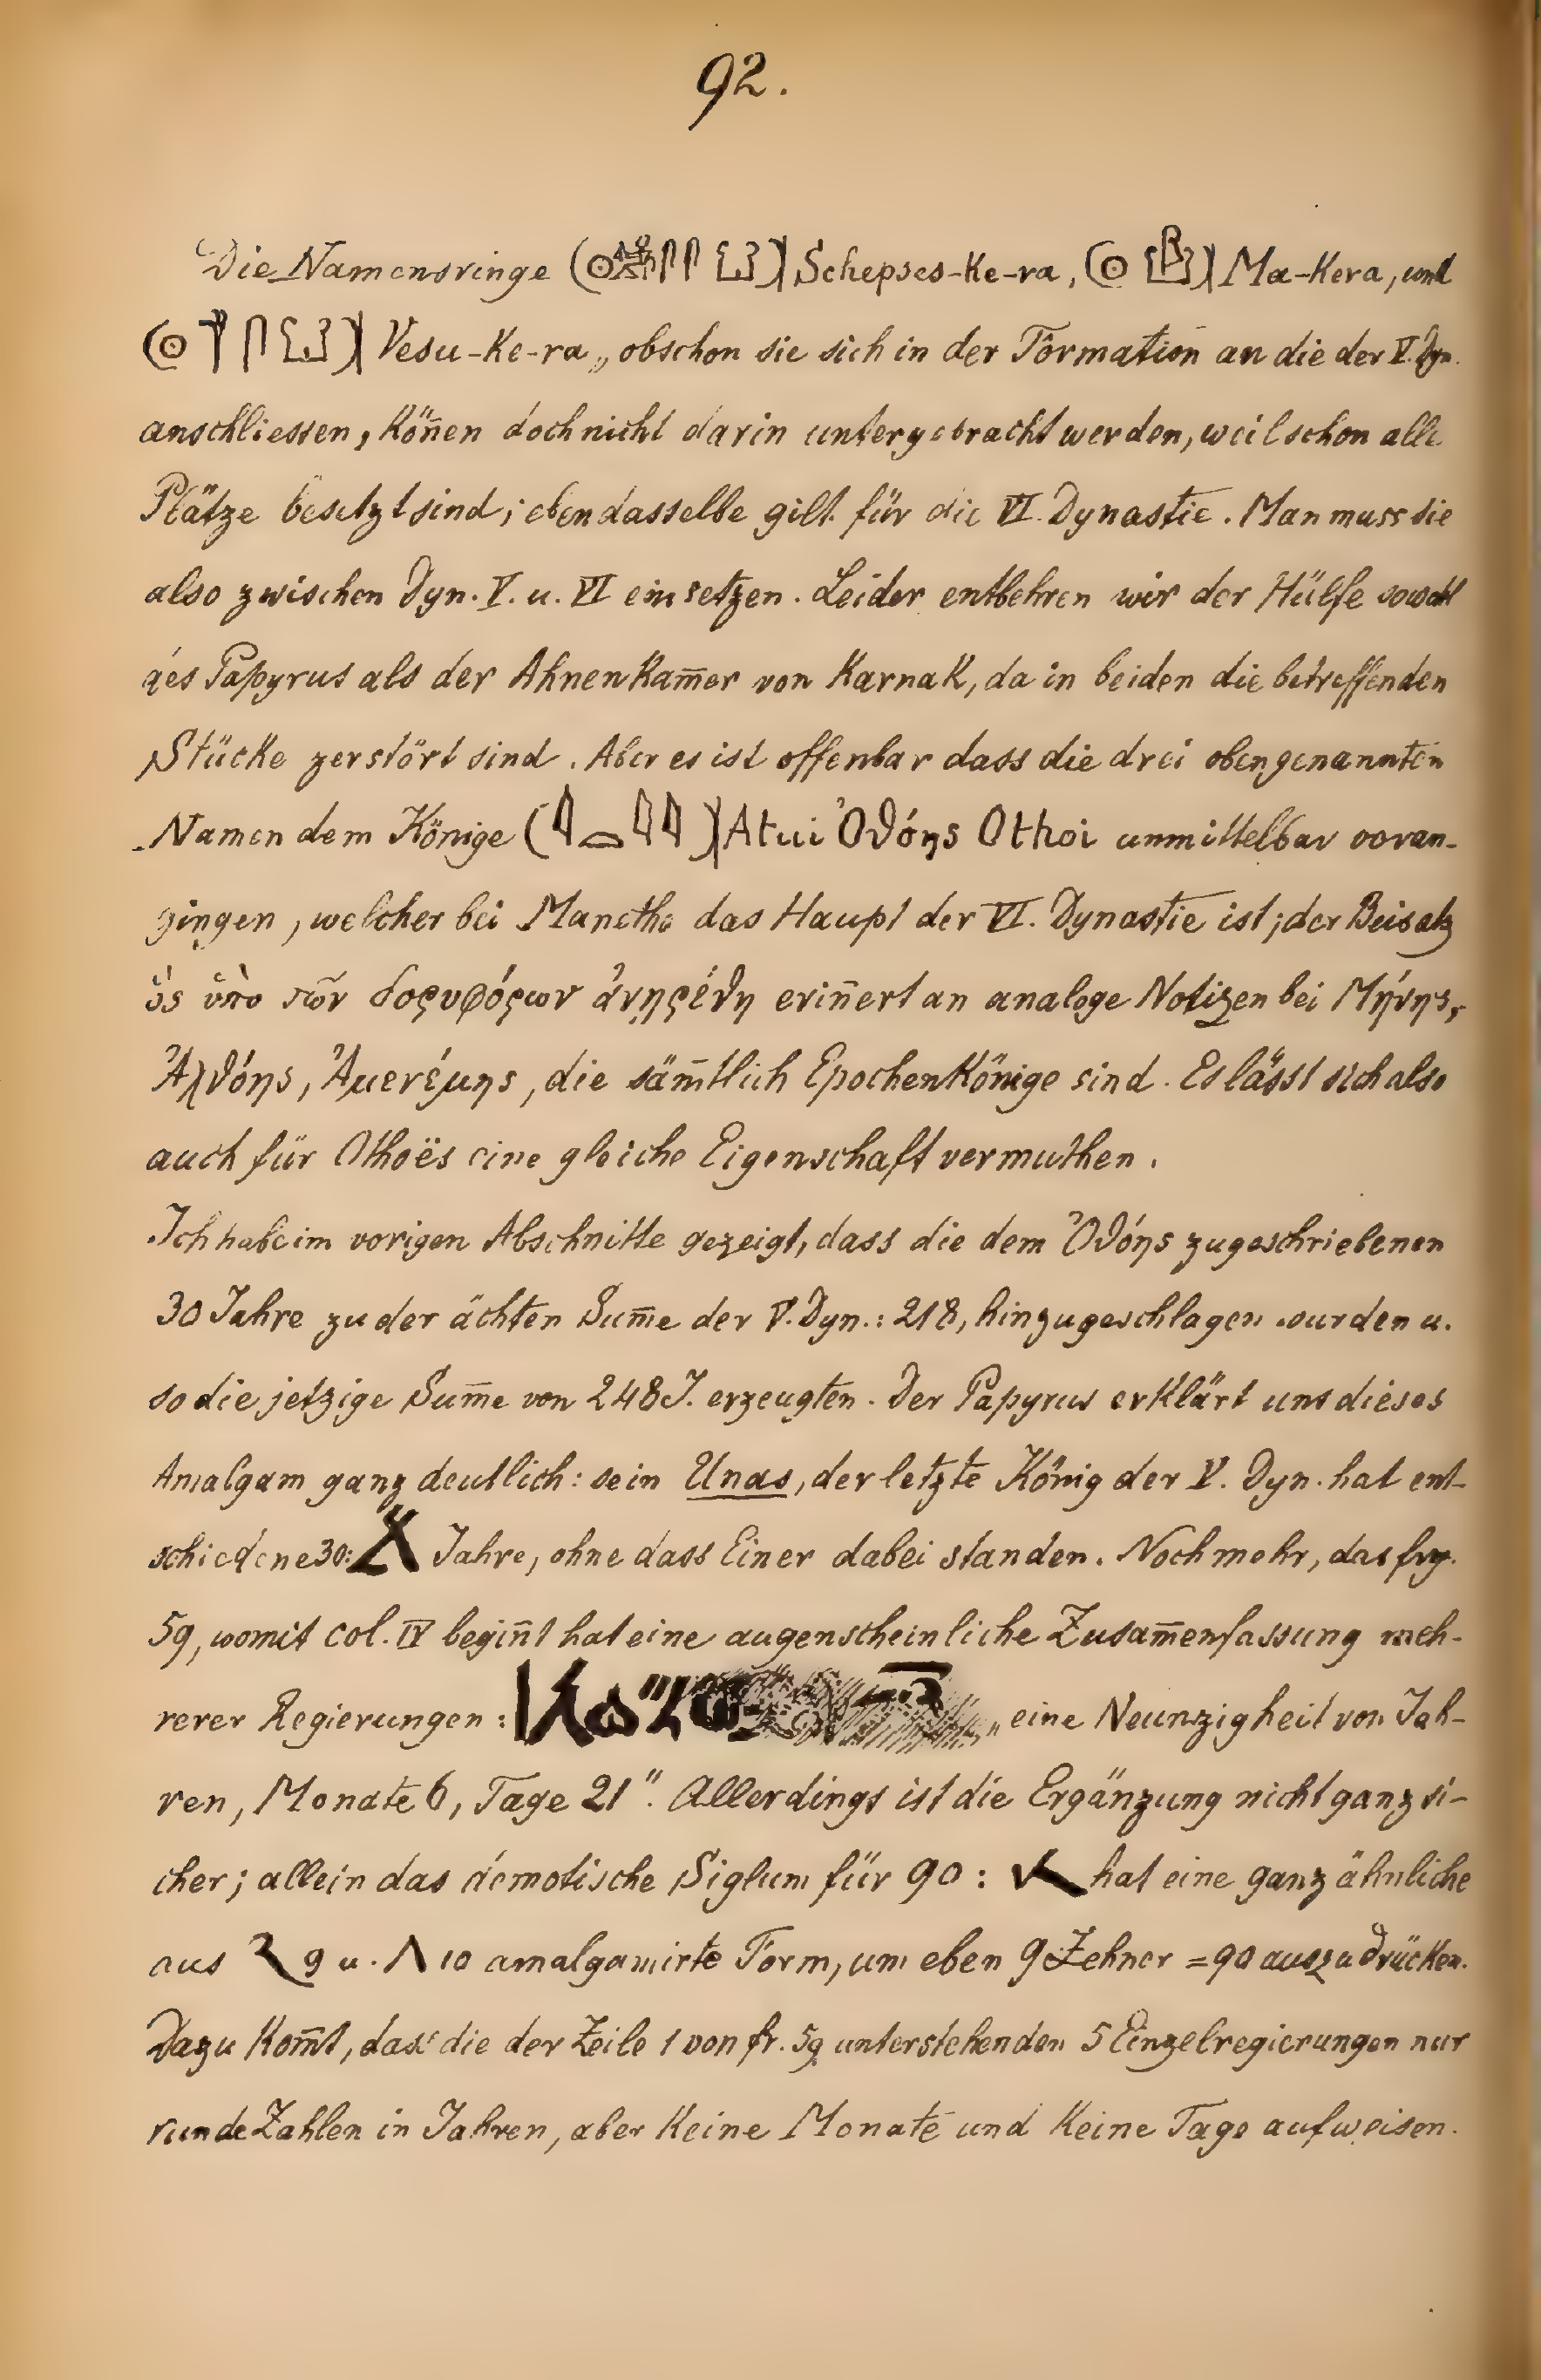 92.
Die Namensringe Schepses-Ke-ra, Ma-Kera, und
Vesu-Ke-ra, obschon sie sich in der Formation an die der V. Dyn.
anschliessen, Kön̄en doch nicht darin untergebracht werden, weil schon alle
Plätze besetzt sind; ebendasselbe gilt für die VI. Dynastie. Man muss sie
also zwischen Dyn. V. u. VI einsetzen. Leider entbehren wir der Hülfe sowohl
des Papyrus als der AhnenKam̄er von Karnak, da in beiden die betreffenden
Stücke zerstört sind. Aber es ist offenbar dass die drei obengenannten
Namen dem Könige Atui Ὀθόης Othoi unmittelbar voran-
gingen, welcher bei Manetho das Haupt der VI. Dynastie ist; der Beisatz
ὃς ὑπὸ τῶν δορυφόρων ἀνῃρέθη erin̄ert an analoge Notizen bei Μήνης,
Ἀχθόης, Ἀμενέμης, die säm̄tlich EpochenKönige sind. Es lässt sich also
auch für Othoës eine gleiche Eigenschaft vermuthen.
Ich habe im vorigen Abschnitte gezeigt, dass die dem Ὀθόης zugeschriebenen
30 Jahre zu der ächten Sum̄e der V. Dyn.: 218, hinzugeschlagen wurden u.
so die jetzige Sum̄e von 248 J. erzeugten. Der Papyrus erklärt uns dieses
Amalgam ganz deutlich: sein Unas, der letzte König der V. Dyn. hat ent-
schiedene 30: Jahre, ohne dass Einer dabei standen. Noch mehr, das frg.
59, womit col. IV begin̄t hat eine augenscheinliche Zusam̄enfassung meh-
rerer Regierungen: „eine Neunzigheit von Jah-
ren, Monate 6, Tage 21". Allerdings ist die Ergänzung nicht ganz si-
cher; allein das demotische Siglum für 90: hat eine ganz ähnliche
aus 9 u. 10 amalgamirte Form, um eben 9 Zehner = 90 auszudrücken.
Dazu Kom̄t, dass die der Zeile 1 von fr. 59 unterstehenden 5 Einzelregierungen nur
runde Zahlen in Jahren, aber Keine Monate und Keine Tage aufweisen.